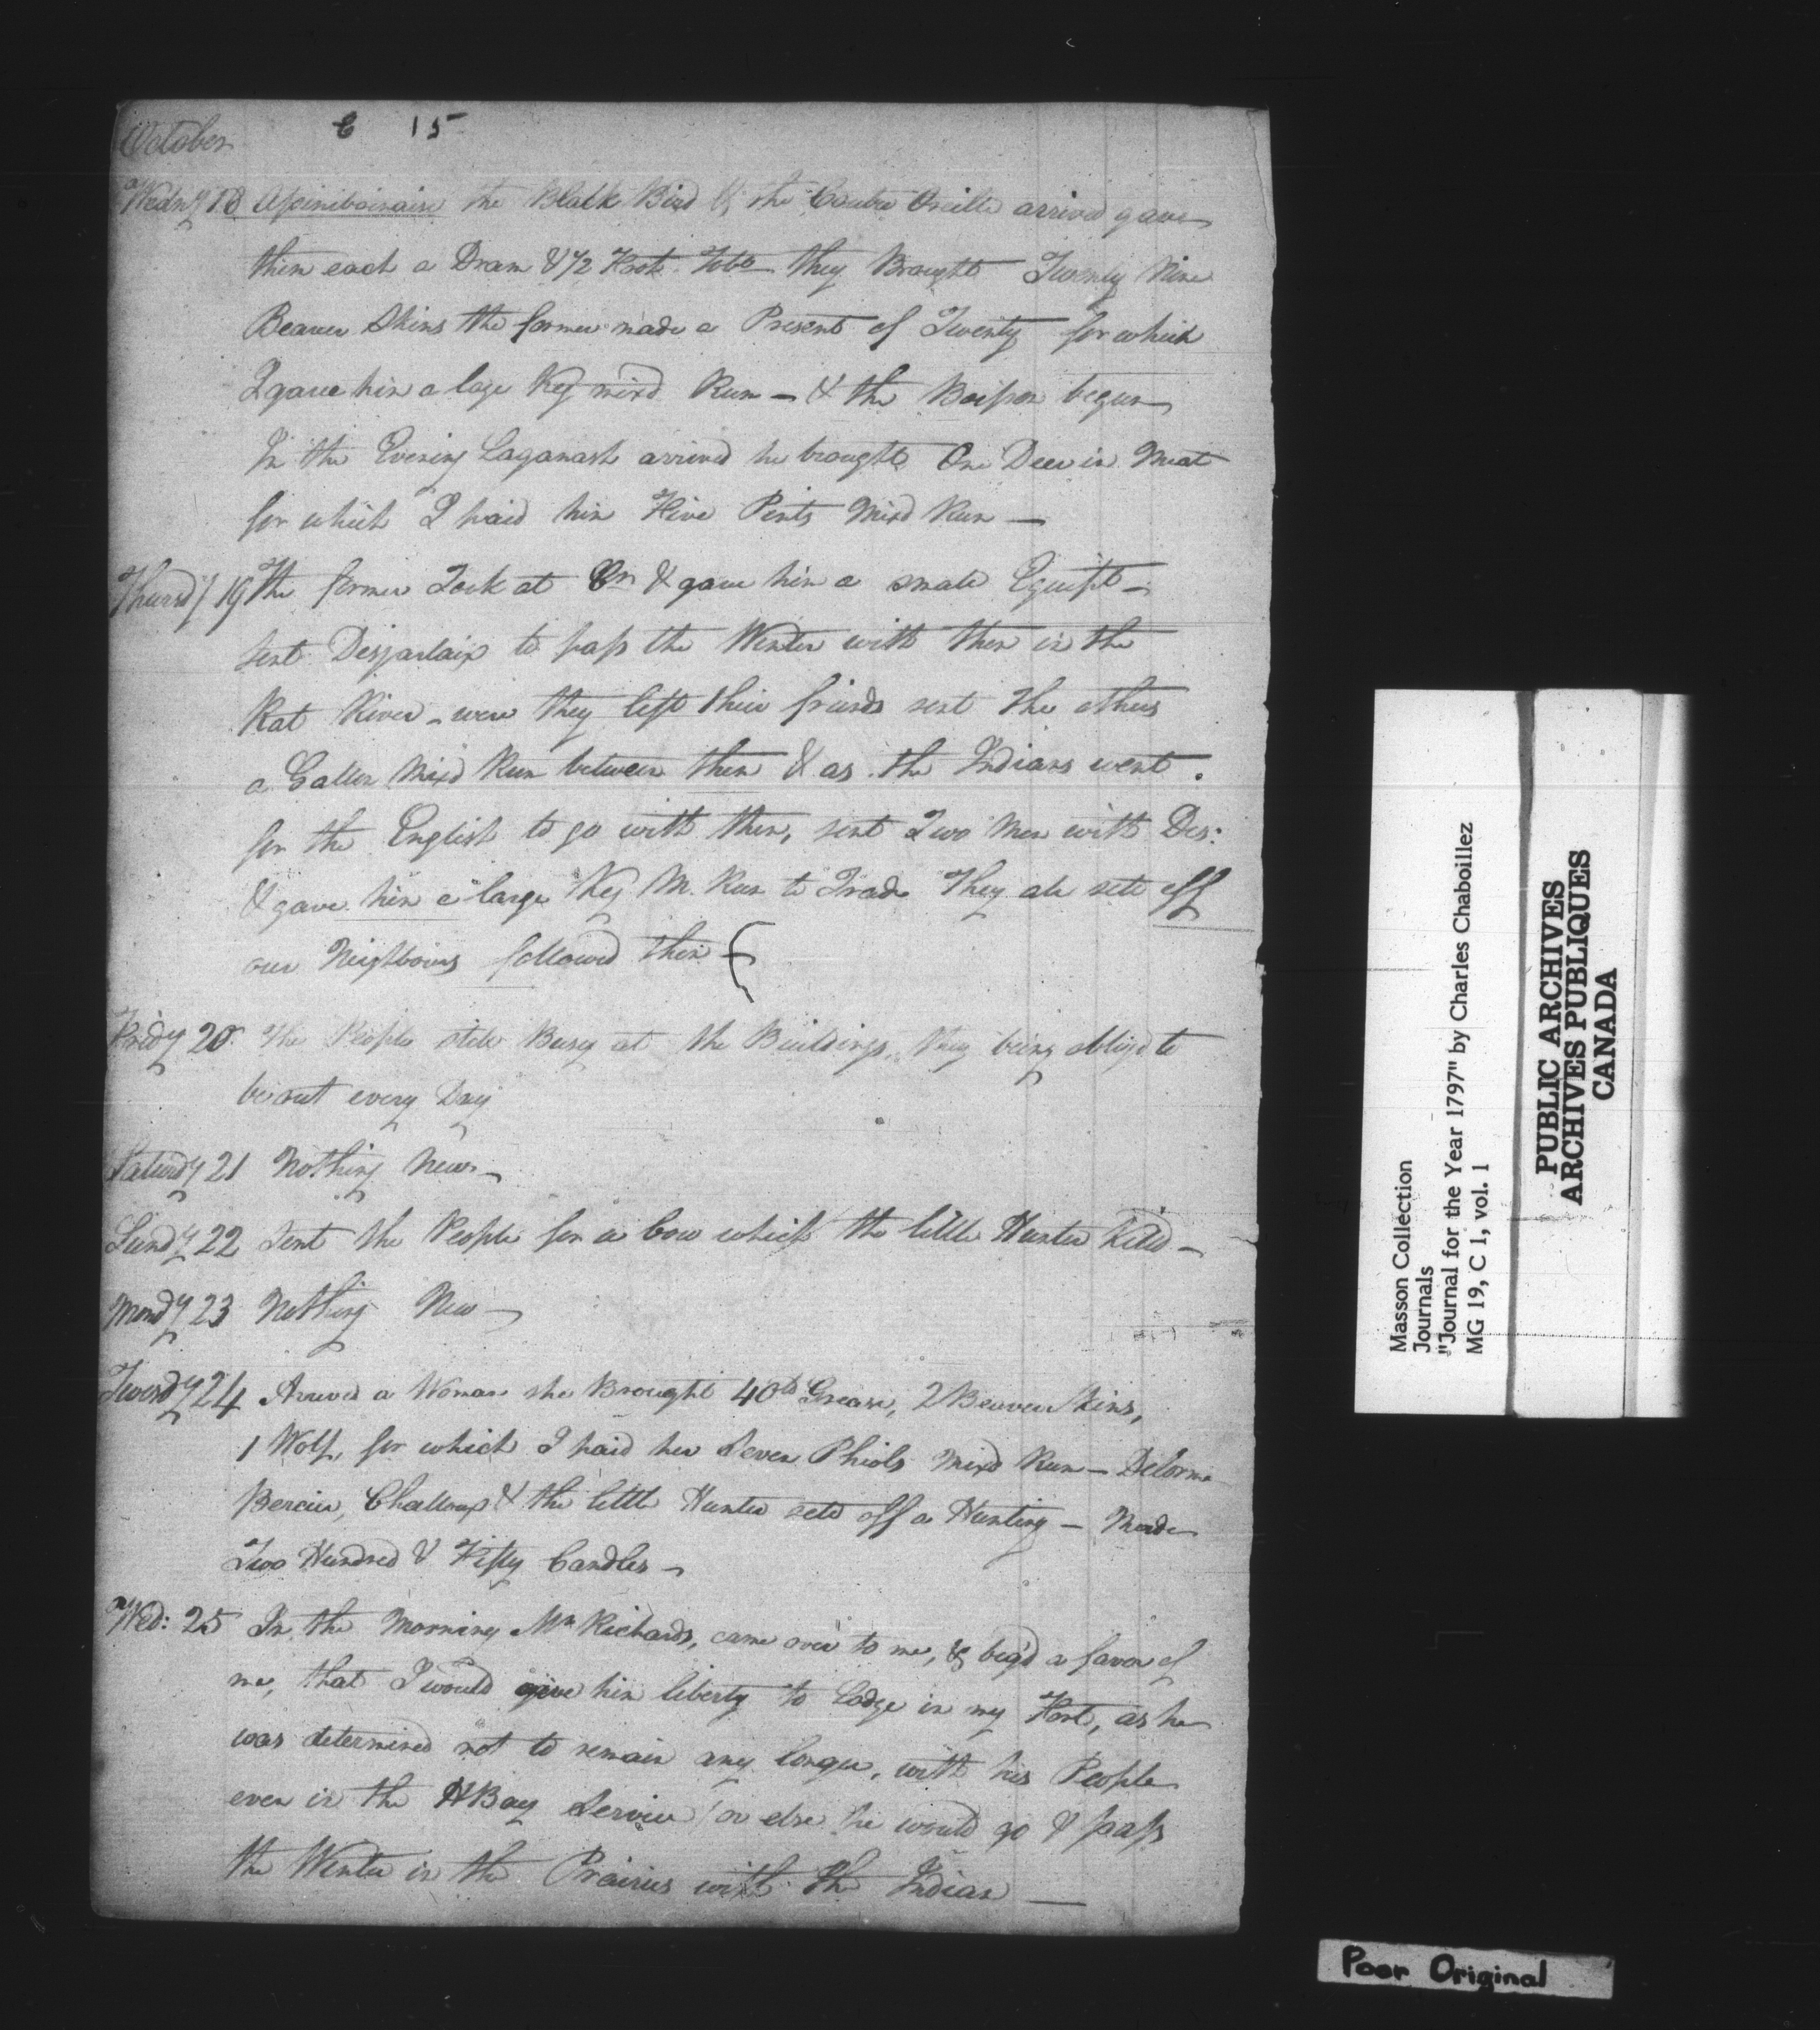 October 6 15
Wedny 18 Assiniboinaise the Black Bird & the Coutre Oreille arrived gave
them each a Dram & 1/2 Foot Tobo they Brought Twenty Nine
Beaver Skins the former made a Present of Twenty for which
I gave him a large Keg mixd Rum — & the Boisson began
In the Evening Laganash arrived he brought One Deer in Meat
for which I paid him Five Pints Mixd Rum —
Thursdy 19 The former Took at Cn & gave him a smale Equipt —
sent Desjarlaix to pass the Winter with them in the
Rat River — were they left their friends sent the others
a Gallon Mixd Rum between them & as the Indians went
for the English to go with them, sent Two Men with Des:
& gave him a large Keg M. Rum to Trade They ale sett off
our Neighbours followed them —
Fridy 20 The People stile Busy at the Buildings, they being obliged to
be out every Day
Saturdy 21 Nothing New —
Sundy 22 Sent the People for a Cow which the little Hunter Killd —
Mondy 23 Nothing New —
Tuesdy 24 Arrived a Woman she Brought 40lb Grease, 2 Beaver Skins,
1 Wolf, for which I paid her Seven Phiols mixd Rum — Delorme
Bercier, & the little Hunter sett off a Hunting — Made
Two Hundred & Fifty Candles —
Wed: 25 In the Morning Mr Richards, came over to me, & beg'd a favor of
me, that I would give him liberty to Lodge in my Fort, as he
was determined not to remain any longer, with his People
even in the HBay Service or else he would go & pass
the Winter in the Prairies with the Indian —
Masson Collection
Journals
"Journal for the Year 1797" by Charles Chaboillez
MG 19, C 1, vol. 1
PUBLIC ARCHIVES
ARCHIVES PUBLIQUES
CANADA
Poor Original